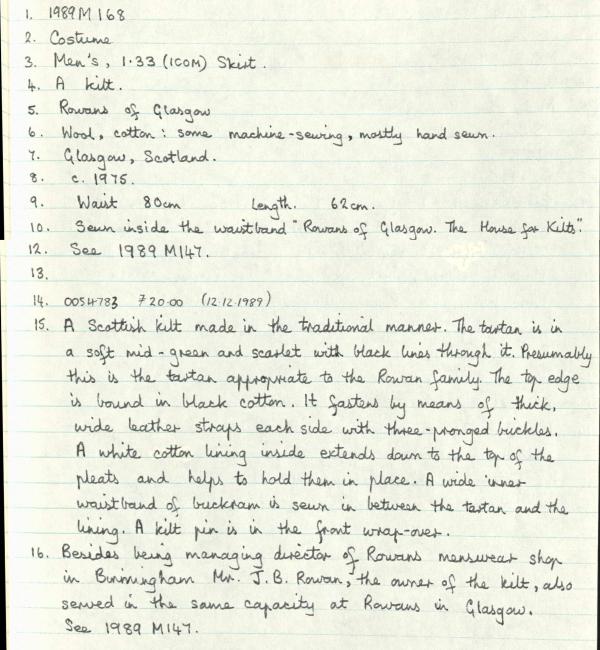 1. 1989 M 168
2. Costume
3. Men's, 1.33 (ICOM) Skirt.
4. A kilt.
5. Rowans of Glasgow
6. Wool, cotton: some machine-sewing, mostly hand sewn.
7. Glasgow, Scotland.
8. c. 1975.
9. Waist 80cm Length. 62cm.
10. Sewn inside the waistband "Rowans of Glasgow. The House for Kilts".
12. See 1989 M147.
13.
14. 0054783 £20.00 (12.12.1989)
15. A Scottish kilt made in the traditional manner. The tartan is in
a soft mid-green and scarlet with black lines through it. Presumably
this is the tartan appropriate to the Rowan family. The top edge
is bound in black cotton. It fastens by means of thick,
wide leather straps each side with three-pronged buckles.
A white cotton lining inside extends down to the top of the
pleats and helps to hold them in place. A wide inner
waistband of buckram is sewn in between the tartan and the
lining. A kilt pin is in the front wrap-over.
16. Besides being managing director of Rowans menswear shop
in Birmingham Mr. J.B. Rowan, the owner of the kilt, also
served in the same capacity at Rowans in Glasgow.
See 1989 M147.